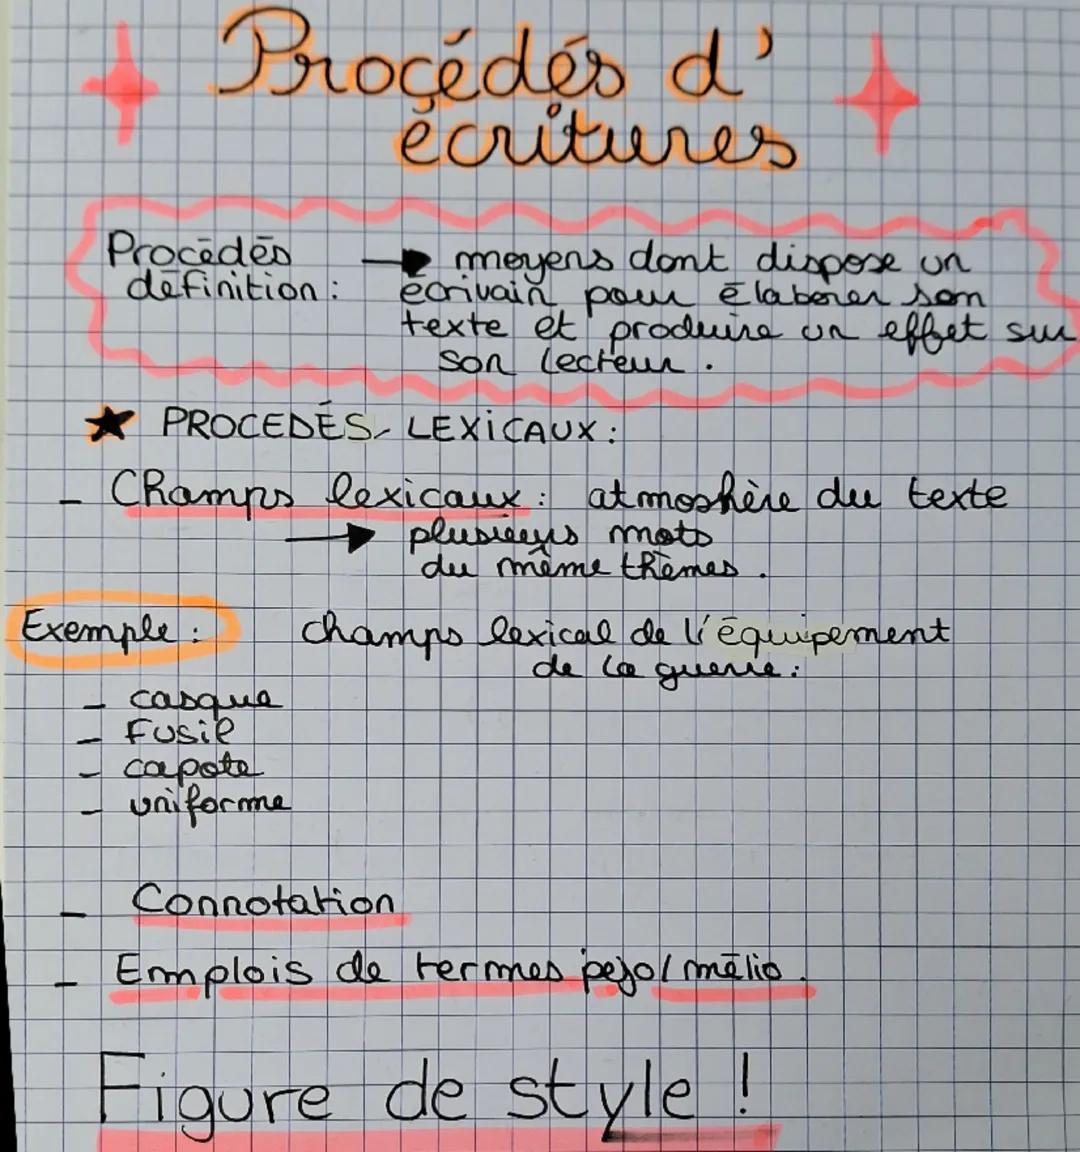 Procédés d'
écritures
Procédés → moyens dont dispose un
définition : écrivain pour élaborer son
texte et produire un effet sur
son lecteur.
★ PROCEDÉS LEXICAUX :
- Champs lexicaux : atmoshère du texte
→ plusieurs mots
du même thèmes.
Exemple : champs lexical de l'équipement
de la guerre :
- casque
- Fusil
- capote
- uniforme
- Connotation
- Emplois de termes pejo/mélio.
Figure de style !